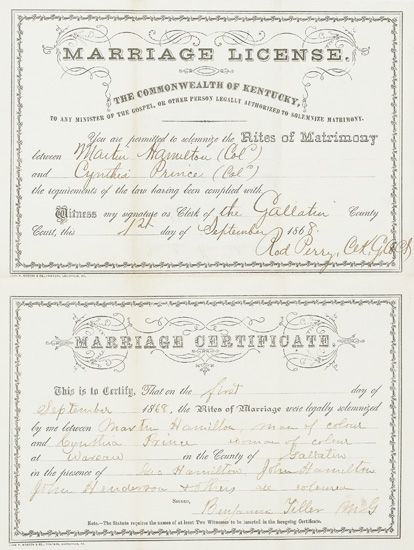 MARRIAGE LICENSE.
THE COMMONWEALTH OF KENTUCKY,
TO ANY MINISTER OF THE GOSPEL, OR OTHER PERSON LEGALLY AUTHORIZED TO SOLEMNIZE MATRIMONY.
You are permitted to solemnize the Rites of Matrimony
between Martin Hamilton (Cold)
and Cynthia Prince (Cold)
the requirements of the law having been complied with.
Witness my signature as Clerk of the Gallatin County
Court, this 1st day of September 1868.
Rod Perry,
MARRIAGE CERTIFICATE.
This is to Certify, That on the first day of
September 1868, the Rites of Marriage were legally solemnized
by me between Martin Hamilton, man of colour
and Cynthia Prince woman of colour
at Warsaw in the County of Gallatin
in the presence of Hamilton John Hamilton
John Henderson & others all coloured
SIGNED, Benjamin Teller
Note.—The Statute requires the names of at least Two Witnesses to be inserted in the foregoing Certificate.